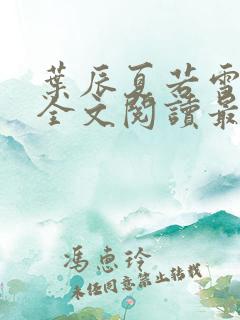 葉辰夏若雪
全文閱讀最
馮惠玲
未经同意禁止转载